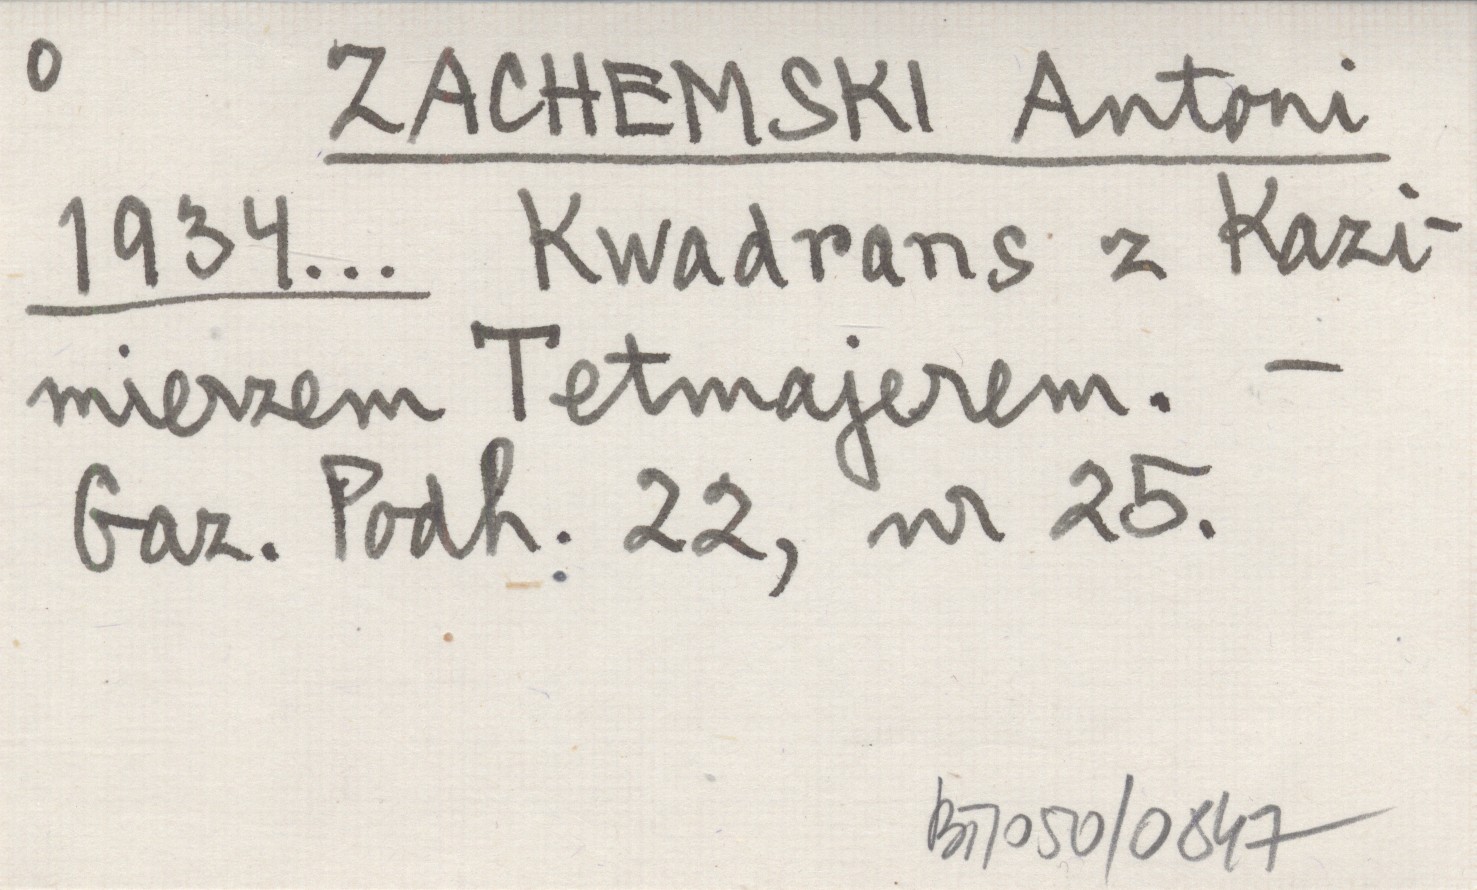 o ZACHEMSKI Antoni
1934... Kwadrans z Kazi-
mierzem Tetmajerem. –
Gaz. Podh. 22, nr 25.
050/0847